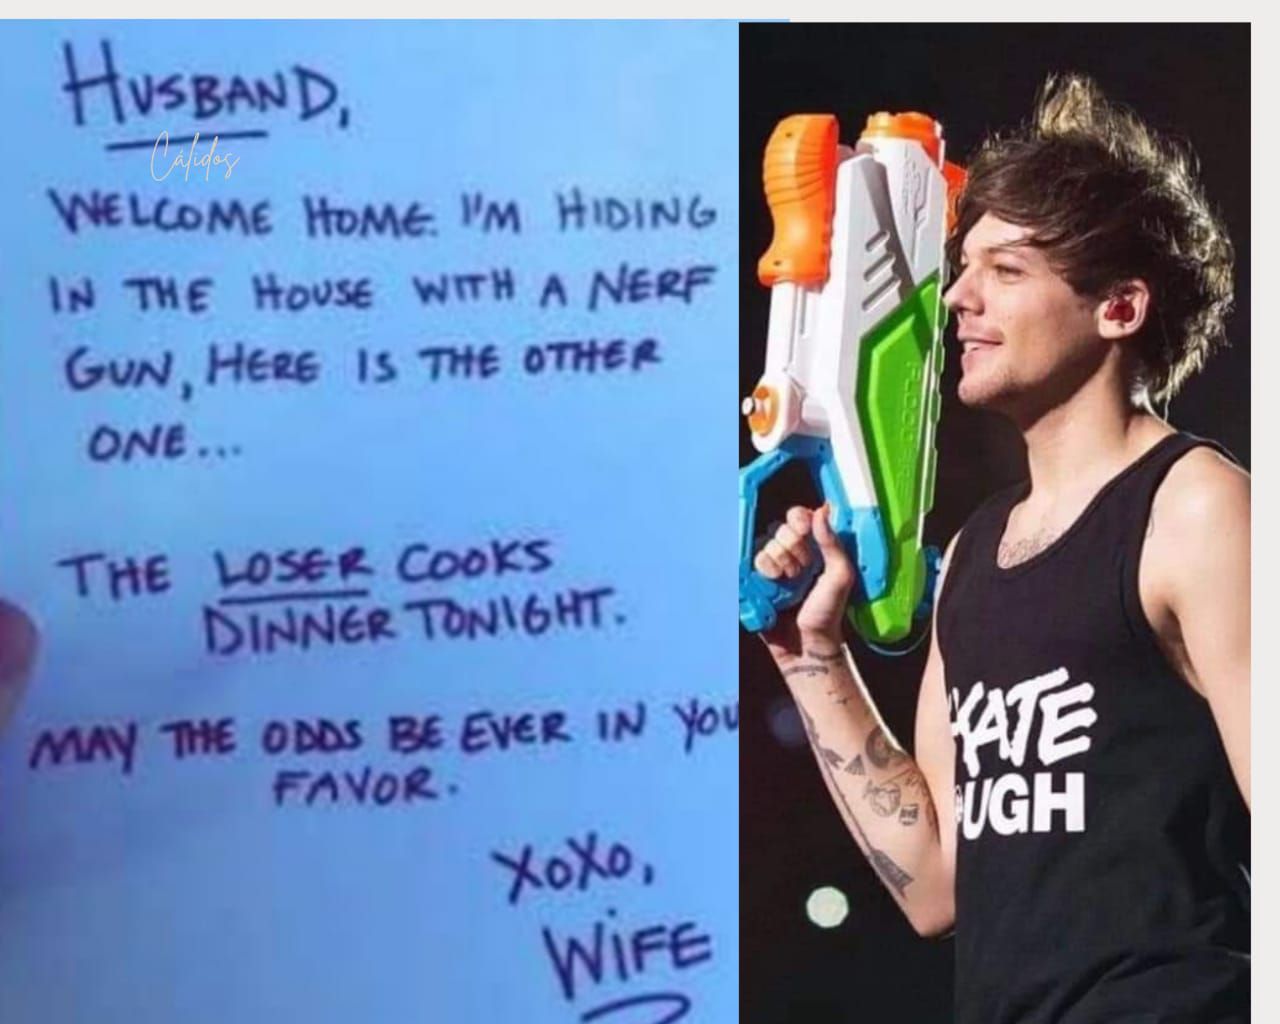 HUSBAND,
Cálidos
WELCOME HOME. I'M HIDING
IN THE HOUSE WITH A NERF
GUN, HERE IS THE OTHER
ONE...
THE LOSER COOKS
DINNER TONIGHT.
MAY THE ODDS BE EVER IN YOU
FAVOR.
XOXO,
WIFE
KATE
UGH